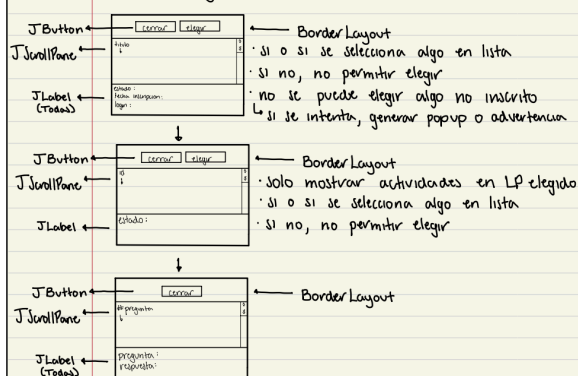 JButton
cerrar elegir
Border Layout
JScrollPane
titulo
· si o si se selecciona algo en lista
· si no, no permitir elegir
JLabel
(Todas)
estado:
fecha inscripción:
login:
· no se puede elegir algo no inscrito
si se intenta, generar popup o advertencia
JButton
cerrar elegir
Border Layout
JScrollPane
id
· solo mostrar actividades en LP elegido
· si o si se selecciona algo en lista
· si no, no permitir elegir
JLabel
estado:
JButton
cerrar
Border Layout
JScrollPane
# pregunta
JLabel
(Todas)
pregunta:
respuesta: